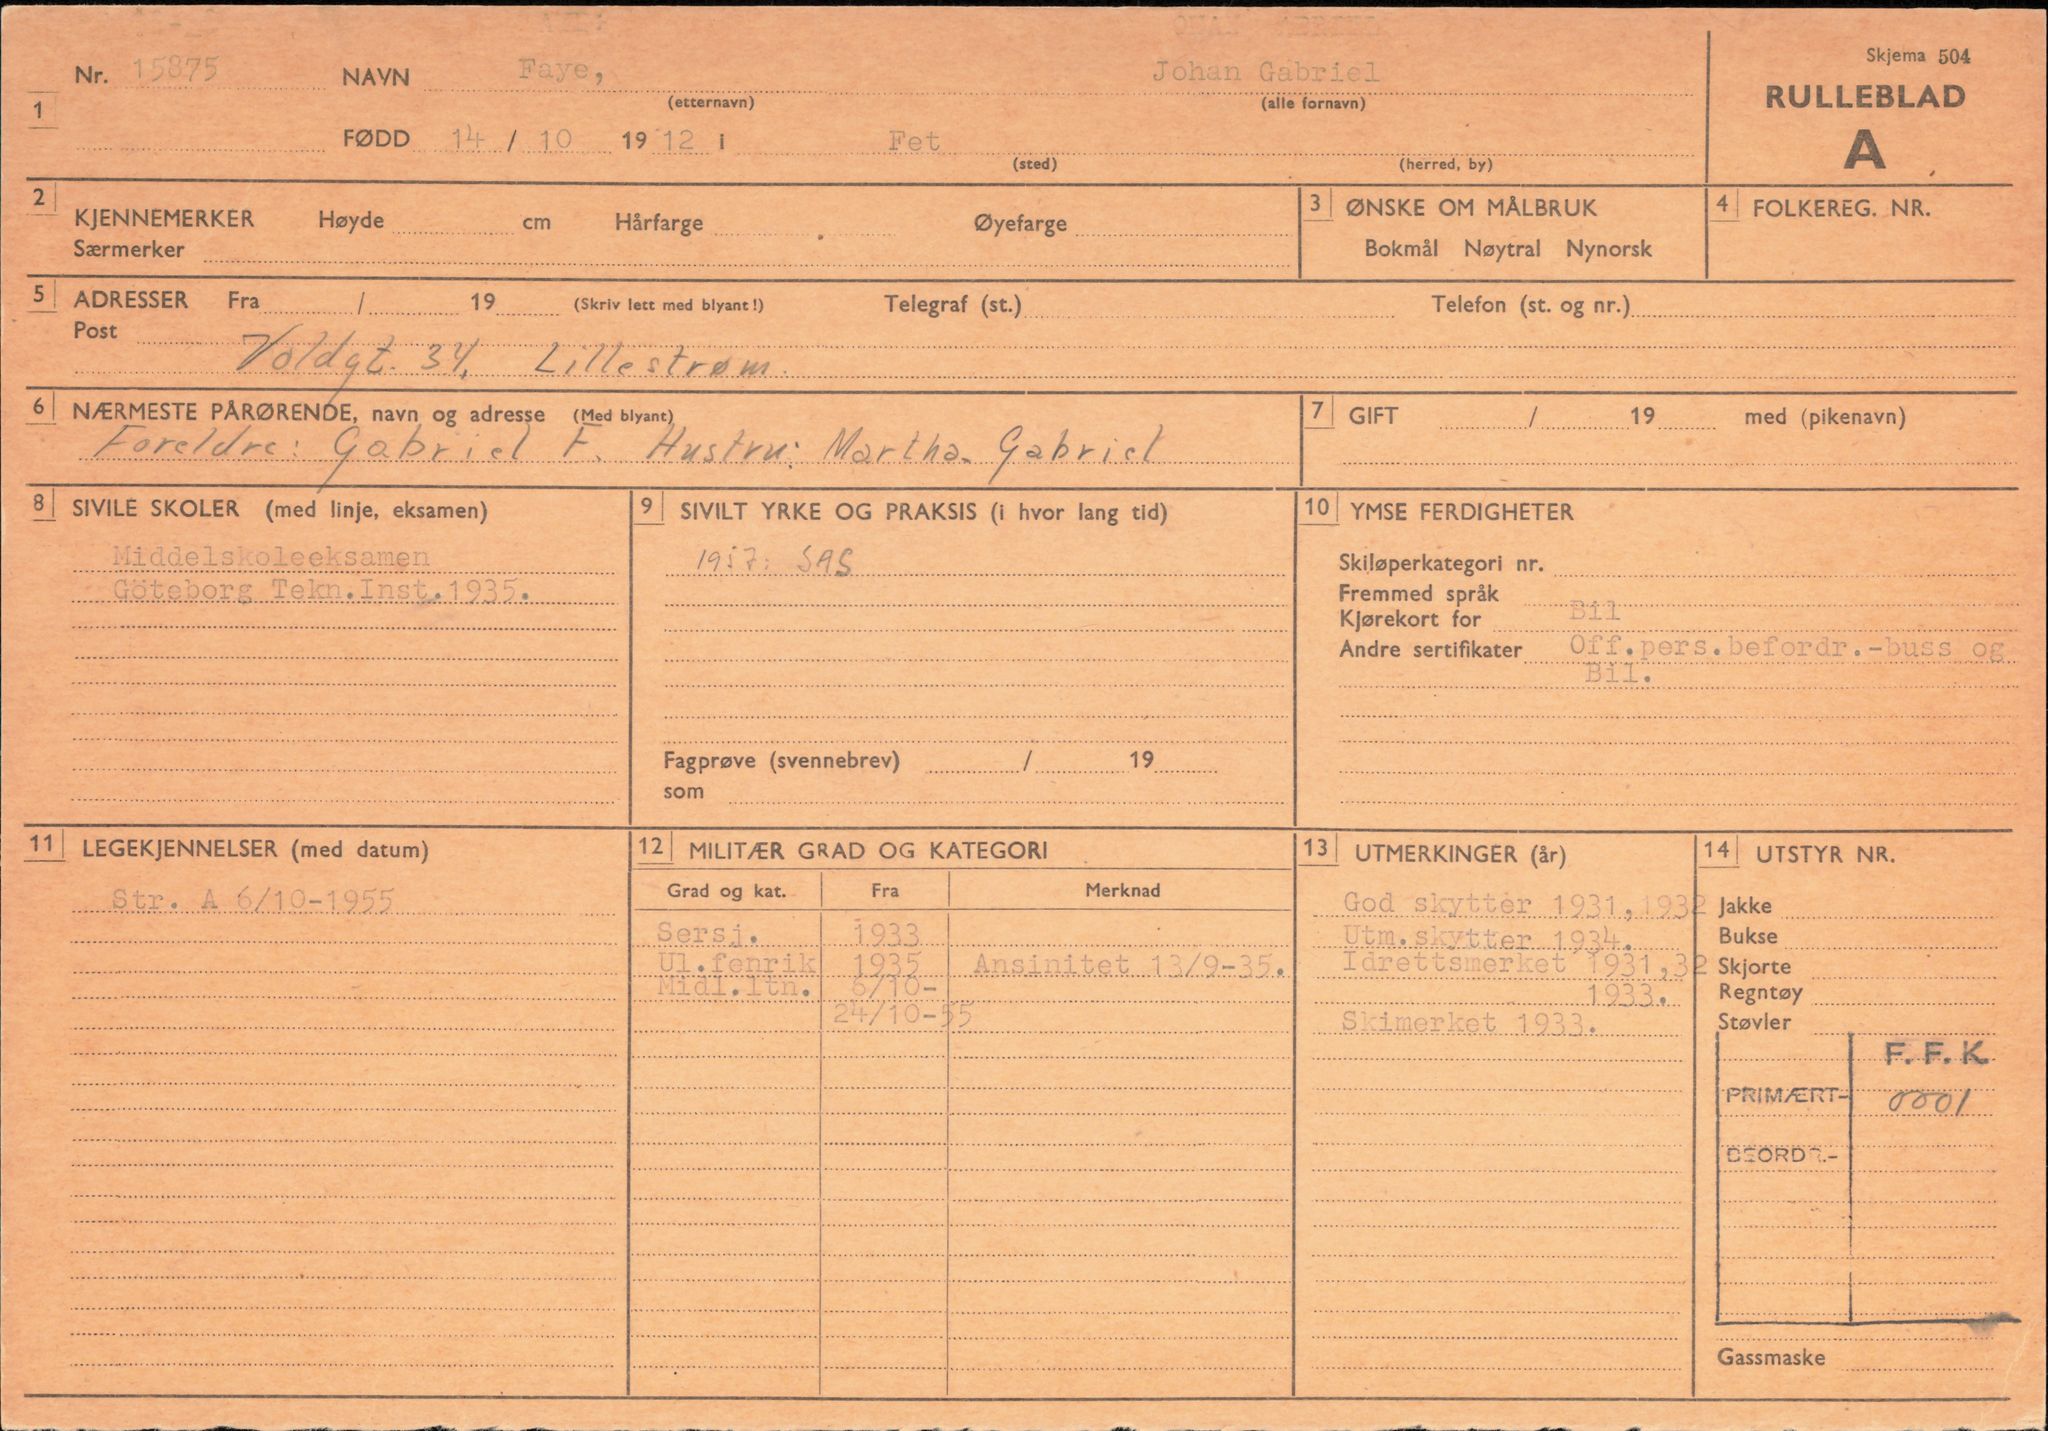 Skjema 504
Nr. 15875 NAVN Faye, Johan Gabriel
(etternavn) (alle fornavn)
RULLEBLAD
A
1
FØDD 14 / 10 1912 i Fet
(sted) (herred, by)
2 KJENNEMERKER Høyde cm Hårfarge Øyefarge
Særmerker
3 ØNSKE OM MÅLBRUK
Bokmål Nøytral Nynorsk
4 FOLKEREG. NR.
5 ADRESSER Fra / 19 (Skriv lett med blyant!) Telegraf (st.) Telefon (st. og nr.)
Post
Voldgt. 34, Lillestrøm.
6 NÆRMESTE PÅRØRENDE, navn og adresse (Med blyant)
Foreldre: Gabriel F. Hustru: Martha Gabriel
7 GIFT / 19 med (pikenavn)
8 SIVILE SKOLER (med linje, eksamen)
Middelskoleeksamen
Göteborg Tekn.Inst.1935.
9 SIVILT YRKE OG PRAKSIS (i hvor lang tid)
1957: SAS
Fagprøve (svennebrev) / 19
som
10 YMSE FERDIGHETER
Skiløperkategori nr.
Fremmed språk
Kjørekort for Bil
Andre sertifikater Off.pers.befordr.-buss og
Bil.
11 LEGEKJENNELSER (med datum)
Str. A 6/10-1955
12 MILITÆR GRAD OG KATEGORI
Grad og kat. Fra Merknad
Sersj. 1933
Ul.fenrik 1935 Ansinitet 13/9-35.
Midl.ltn. 6/10-
24/10-55
13 UTMERKINGER (år)
God skytter 1931,1932
Utm.skytter 1934.
Idrettsmerket 1931,32
1933.
Skimerket 1933.
14 UTSTYR NR.
Jakke
Bukse
Skjorte
Regntøy
Støvler
F. F. K.
PRIMÆRT- 0001
BEORDR.-
Gassmaske